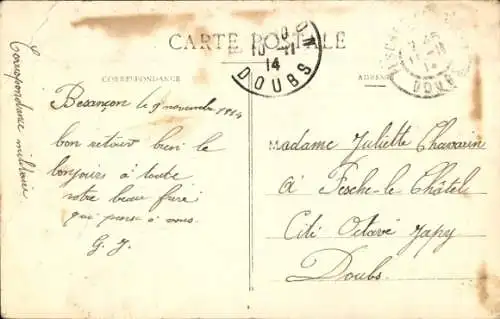 CARTE POSTALE
CORRESPONDANCE
ADRESSE
10-11
14
DOUBS
11-11
14
DOUBS
Correspondance militaire
Besançon le 9 novembre 1914
bon retour bien le
bonjours à toute
votre beau frère
qui pense à vous.
G. J.
Madame Juliette Chavain
à Fesche-le Châtel
Cité Octave Japy
Doubs.